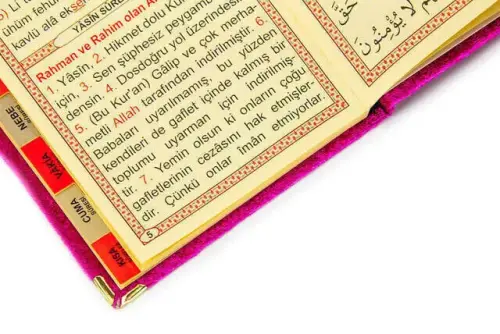 ühüm fehüm
kavlü alâ ekse
YÂSÎN SÛRE
Rahman ve Rahim olan A
1. Yâsîn. 2. Hikmet dolu Kur
için, 3. Sen şüphesiz peygamb
densin. 4. Dosdoğru yol üzerindesi
5. (Bu Kur'an) Gâlip ve çok merha-
metli Allah tarafından indirilmiştir. 6.
Babaları uyarılmamış, bu yüzden
kendileri de gaflet içinde kalmış bir
toplumu uyarman için indirilmiş-
tir. 7. Yemin olsun ki onların çoğu
gafletlerinin cezâsını hak etmişler-
dir. Çünkü onlar îmân etmiyorlar.
5
NEBE
VAKIA
CUMA
SÛRESİ
KISA
لَا يُؤْمِنُونَ